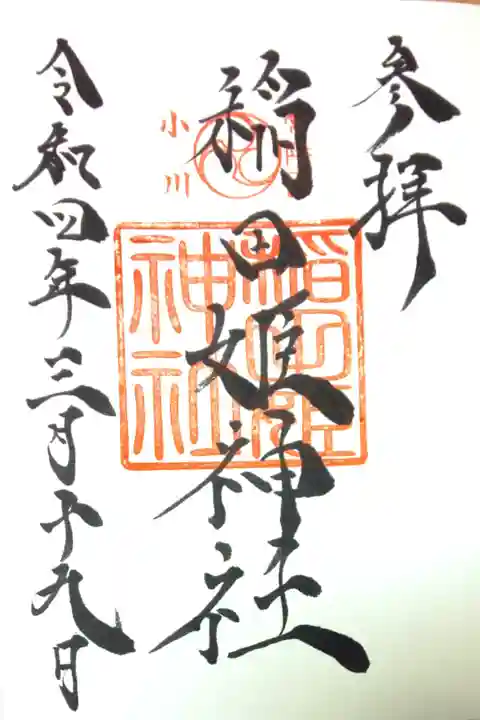 参拝
稲田姫神社
小川
稲田姫
神社
令和四年三月十九日